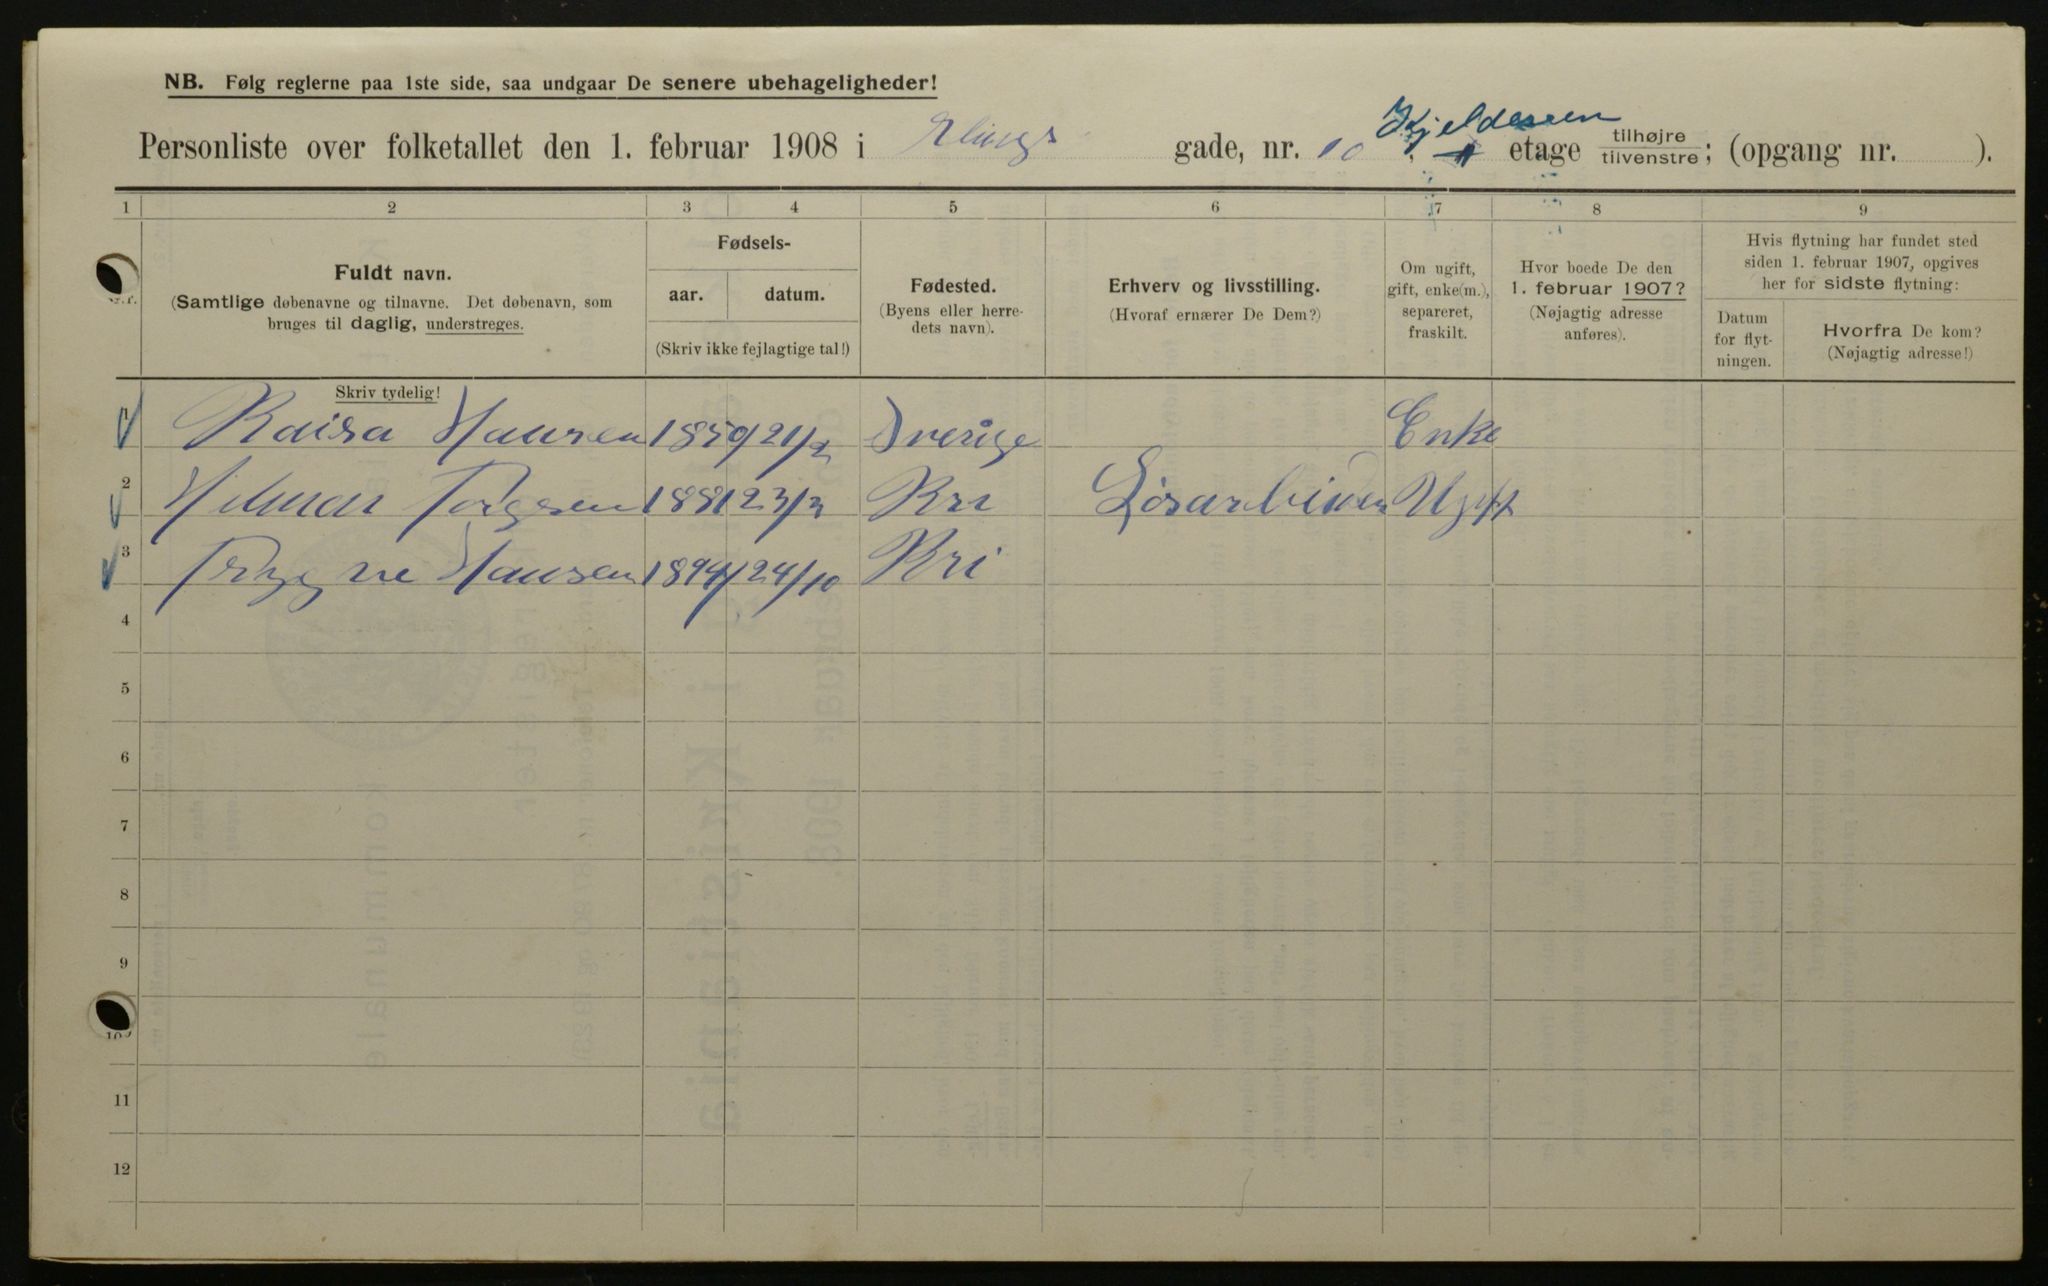 NB. Følg reglerne paa 1ste side, saa undgaar De senere ubehageligheder!
Kjelderen
Personliste over folketallet den 1. februar 1908 i gade, nr. 10 . etage tilhøjre tilvenstre; (opgang nr. ).
1 2 3 4 5 6 7 8 9
Nr.
Fuldt navn.
(Samtlige døbenavne og tilnavne. Det døbenavn, som
bruges til daglig, understreges.
Skriv tydelig!
Fødsels-
aar. datum.
(Skriv ikke fejlagtige tal!)
Fødested.
(Byens eller herre-
dets navn).
Erhverv og livsstilling.
(Hvoraf ernærer De Dem?)
Om ugift,
gift, enke(m.),
separeret,
fraskilt.
Hvor boede De den
1. februar 1907?
(Nøjagtig adresse
anføres).
Hvis flytning har fundet sted
siden 1. februar 1907, opgives
her for sidste flytning:
Datum
for flyt-
ningen.
Hvorfra De kom?
(Nøjagtig adresse!)
1 Hansen 1859 21/2 Sverige Enke
2 Hilmar Torgersen 1881 23/3 Kri Løsarbider Ugift
3 Trygve Hansen 1894 24/10 Kri
4
5
6
7
8
9
10
11
12